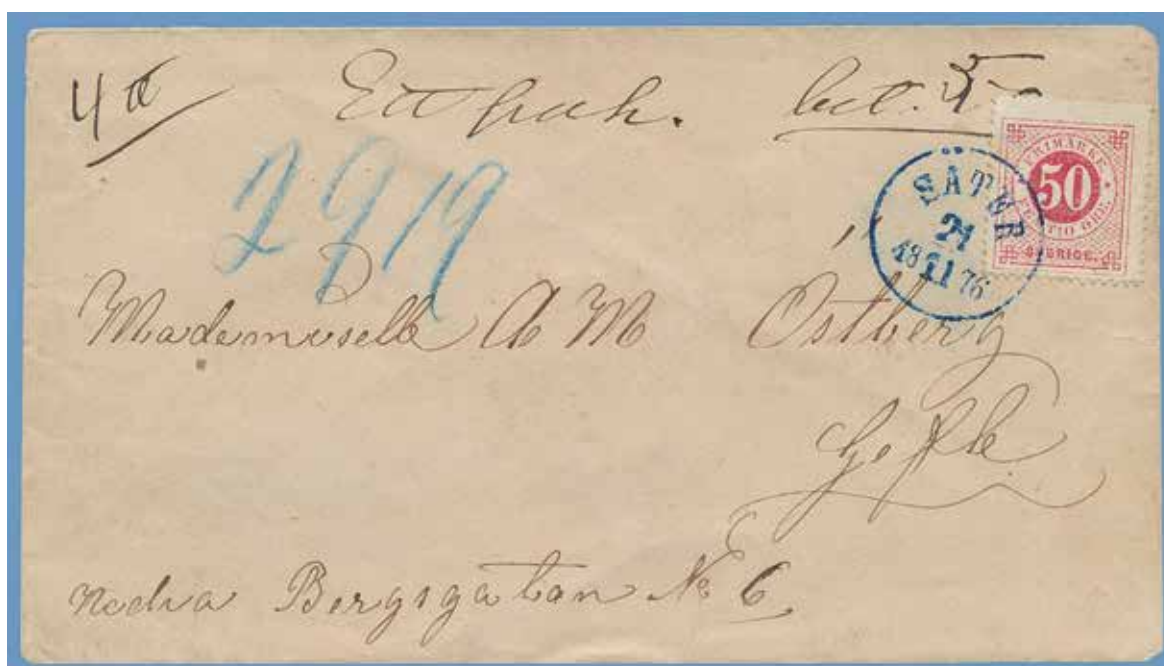 4 ℔ Ett pak. bet. 5
2919
FRIMÄRKE
50
FEMTIO ÖRE.
SVERIGE.
SÄTER
21
18 11 76
Mademoiselle A M Östberg
Gefle.
nedra Bergsgatan No 6.